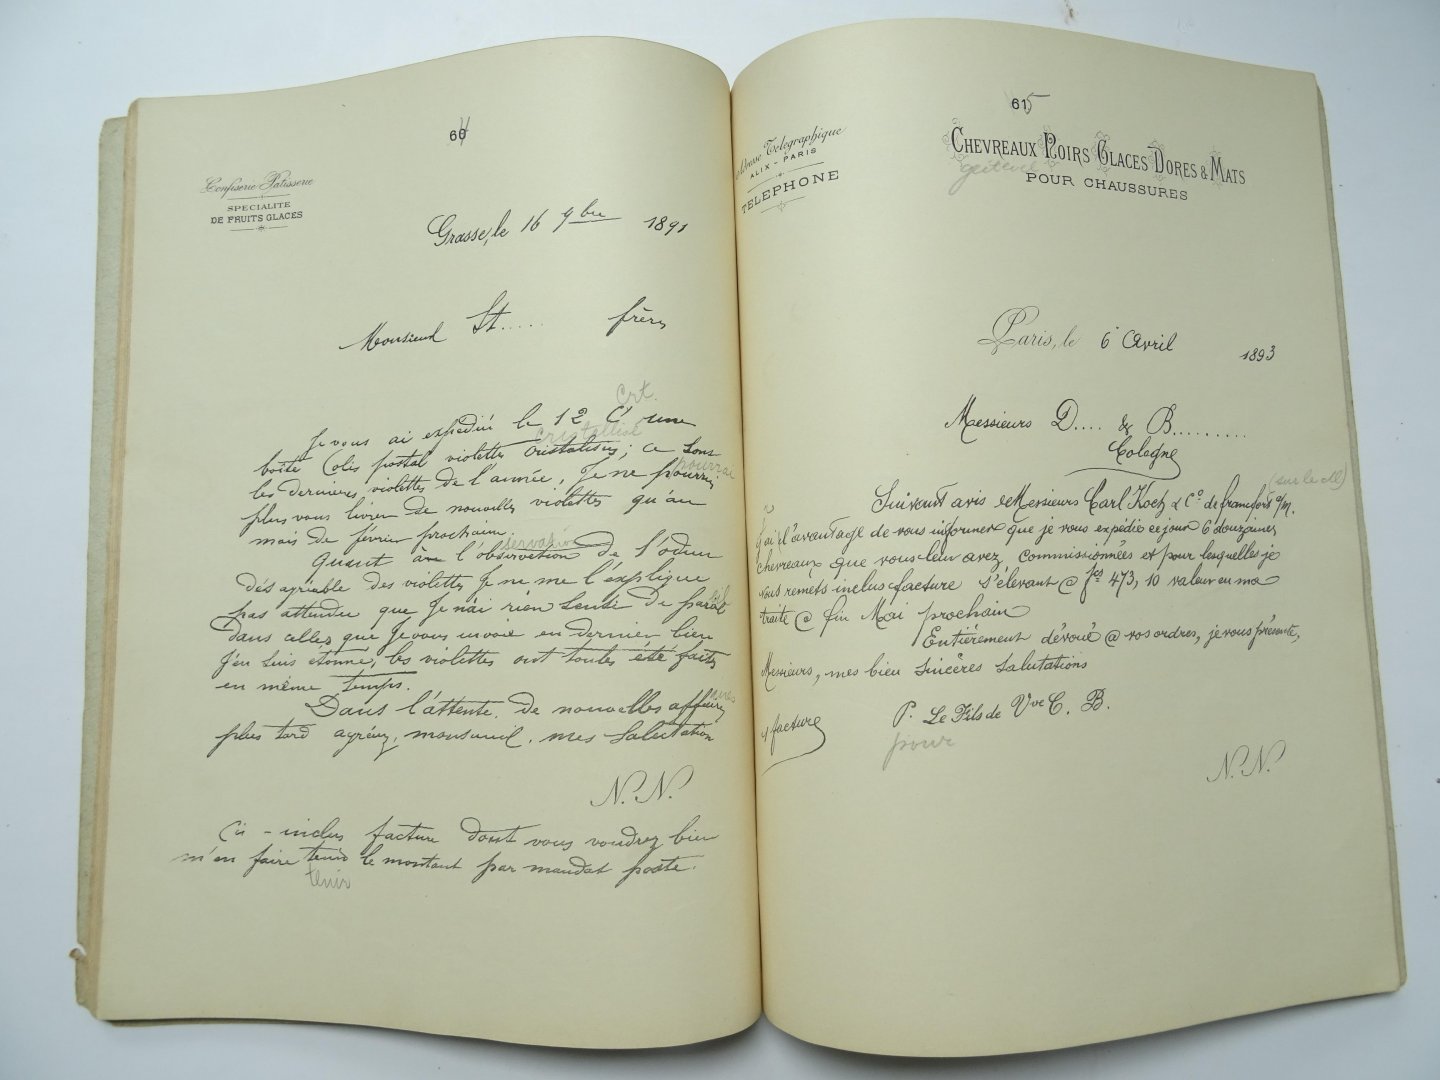 60
4
Confiserie Patisserie
SPECIALITE
DE FRUITS GLACES
Grasse, le 16 9bre 1891
Monsieur St..... frères
Crt.
Je vous ai expédié le 12 Ct une
cristallisé
boîte Colis postal violettes cristalisés; ce sons
pourrai
les dernières violettes de l'année, Je ne pourrai
plus vous livrer de nouvelles violettes qu'au
mois de février prochain.
servation
Quant à l'observation de l'odeur
désagréable des violettes Je ne me l'explique
pas attendu que Je n'ai rien senti de pareil
dans celles, que Je vous envoie en dernier bien
J'en suis étonné, les violettes ont toutes été faites
en même temps.
Dans l'attente de nouvelles affaires
plus tard agréez, monsieur, mes salutation
N. N.
Ci-inclus facture dont vous voudrez bien
m'en faire tenir le montant par mandat poste.
tenir
61
5
Adresse Télégraphique
ALIX - PARIS
TELEPHONE
CHEVREAUX NOIRS GLACES DORES & MATS
POUR CHAUSSURES
Paris, le 6 Avril 1893
Messieurs D.... & B.........
Cologne
(sur le M)
Suivant avis de Messieurs Carl Koch & Co. de francfort s/m.
j'ai l'avantage de vous informer que je vous expédie ce jour 6 douzaines
chevreaux que vous leur avez commissionnées et pour lesquelles je
vous remets inclus facture s'élevant @ fcs 473,10 valeur en ma
traite @ fin Mai prochain
Entièrement dévoué @ vos ordres, je vous présente,
Messieurs, mes bien sincères salutations
P. Le Fils de Vve C. B.
1 facture
pour
N. N.